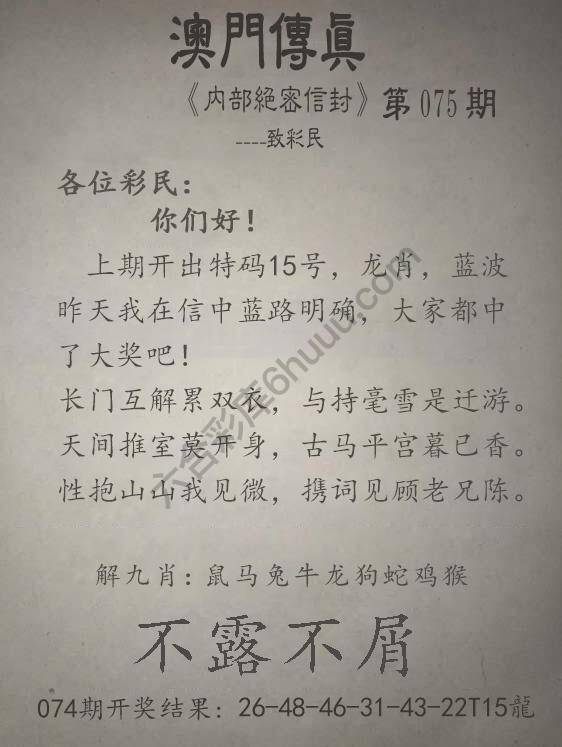 澳門傳眞
《内部絕密信封》第075期
----致彩民
各位彩民：
你们好！
上期开出特码15号，龙肖，蓝波
昨天我在信中蓝路明确，大家都中
了大奖吧！
长门互解累双衣，与持毫雪是迁游。
天间推室莫开身，古马平宫暮已香。
性抱山山我见微，携词见顾老兄陈。
解九肖：鼠马兔牛龙狗蛇鸡猴
不露不屑
074期开奖结果：26-48-46-31-43-22T15龍
六合彩库6huuu.com